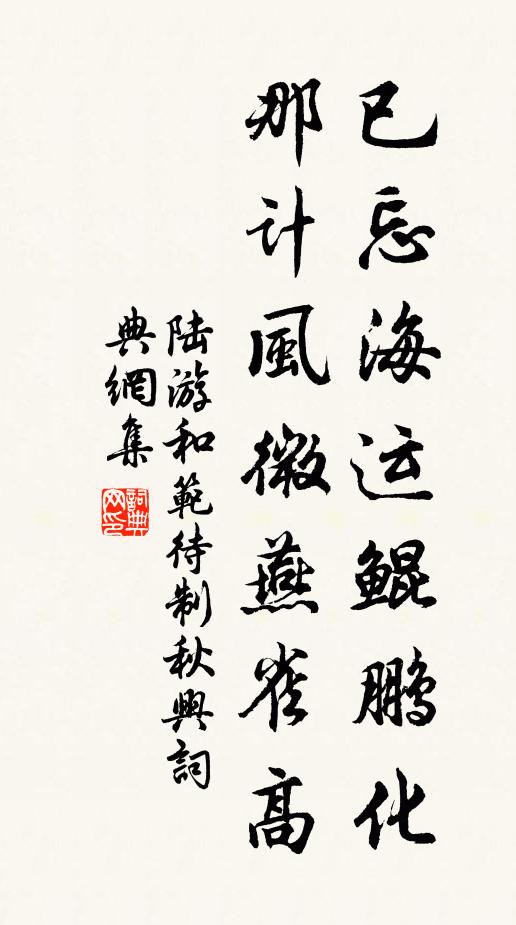 已忘海运鲲鹏化
那计風微燕雀高
陆游和範待制秋興詞
典網集
詞典
网印